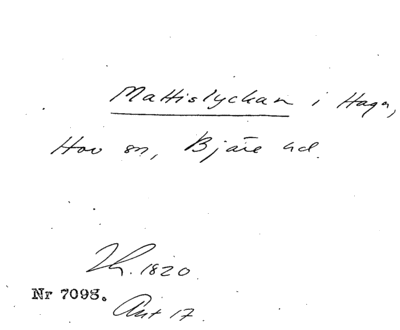 Mattislyckan i Haga,
Hov sn, Bjäre hd.
Th. 1820.
Nr 7098.
Ant 17